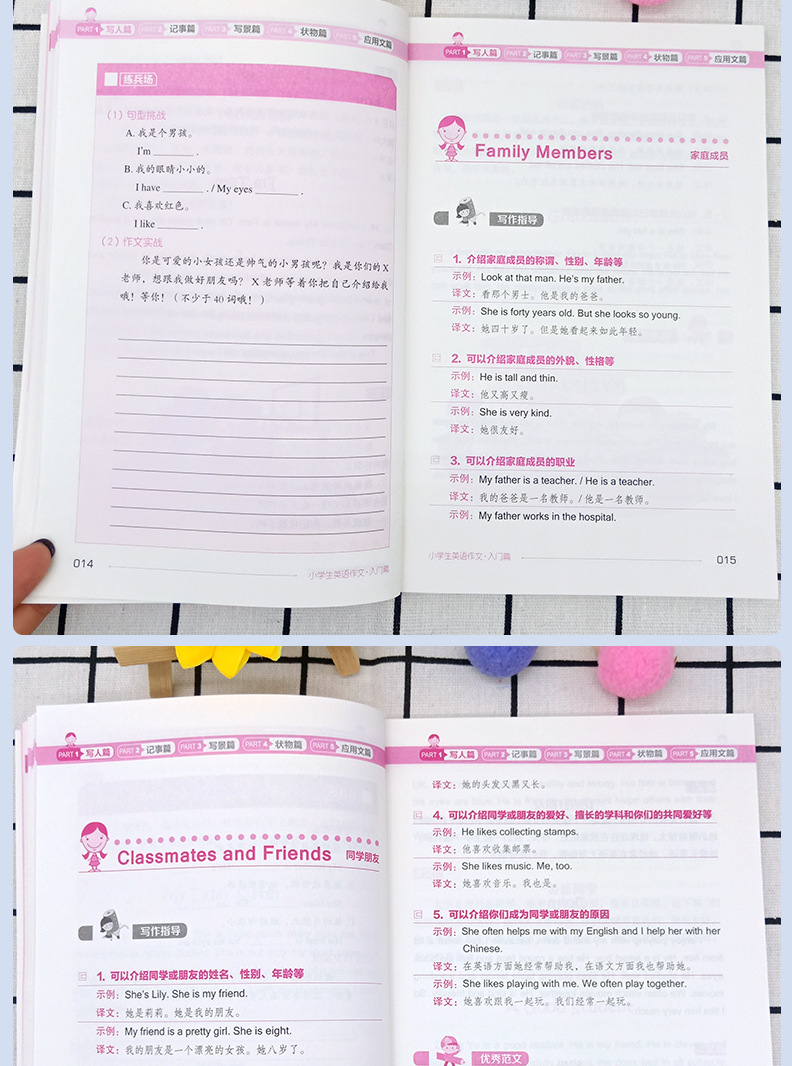 PART 1 写人篇 PART 2 记事篇 PART 3 写景篇 PART 4 状物篇 PART 5 应用文篇
练兵场
（1）句型挑战
A. 我是个男孩。
I'm ________ .
B. 我的眼睛小小的。
I have ________ . / My eyes ________ .
C. 我喜欢红色。
I like ________ .
（2）作文实战
你是可爱的小女孩还是帅气的小男孩呢？我是你们的X
老师，想跟我做好朋友吗？X 老师等着你把自己介绍给我
哦！等你！（不少于 40 词哦！）
014
小学生英语作文·入门篇
PART 1 写人篇 PART 2 记事篇 PART 3 写景篇 PART 4 状物篇 PART 5 应用文篇
Family Members 家庭成员
写作指导
1. 介绍家庭成员的称谓、性别、年龄等
示例：Look at that man. He's my father.
译文：看那个男士。他是我的爸爸。
示例：She is forty years old. But she looks so young.
译文：她四十岁了。但是她看起来如此年轻。
2. 可以介绍家庭成员的外貌、性格等
示例：He is tall and thin.
译文：他又高又瘦。
示例：She is very kind.
译文：她很友好。
3. 可以介绍家庭成员的职业
示例：My father is a teacher. / He is a teacher.
译文：我的爸爸是一名教师。/ 他是一名教师。
示例：My father works in the hospital.
小学生英语作文·入门篇
015
PART 1 写人篇 PART 2 记事篇 PART 3 写景篇 PART 4 状物篇 PART 5 应用文篇
Classmates and Friends 同学朋友
写作指导
1. 可以介绍同学或朋友的姓名、性别、年龄等
示例：She's Lily. She is my friend.
译文：她是莉莉。她是我的朋友。
示例：My friend is a pretty girl. She is eight.
译文：我的朋友是一个漂亮的女孩。她八岁了。
PART 1 写人篇 PART 2 记事篇 PART 3 写景篇 PART 4 状物篇 PART 5 应用文篇
译文：她的头发又黑又长。
4. 可以介绍同学或朋友的爱好、擅长的学科和你们的共同爱好等
示例：He likes collecting stamps.
译文：他喜欢收集邮票。
示例：She likes music. Me, too.
译文：她喜欢音乐。我也是。
5. 可以介绍你们成为同学或朋友的原因
示例：She often helps me with my English and I help her with her
Chinese.
译文：在英语方面她经常帮助我，在语文方面我也帮助她。
示例：She likes playing with me. We often play together.
译文：她喜欢跟我一起玩。我们经常一起玩。
优秀范文